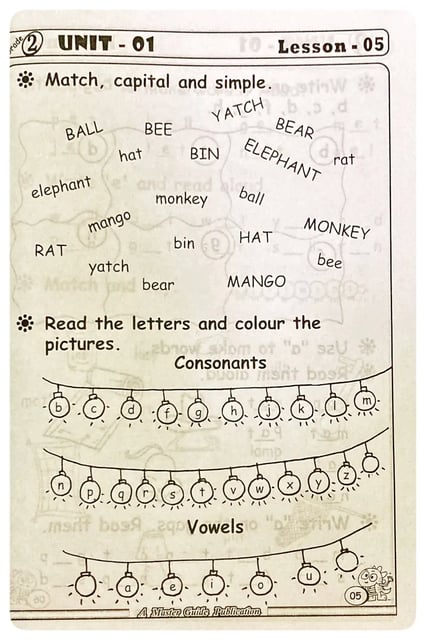 Grade 2 UNIT - 01 Lesson - 05
Match, capital and simple.
YATCH
BALL BEE BEAR
hat BIN ELEPHANT rat
elephant monkey ball
mango MONKEY
RAT bin HAT
yatch bee
bear MANGO
Read the letters and colour the
pictures.
Consonants
b c d f g h j k l m
n p q r s t v w x y z
Vowels
a e i o u
05
A Master Guide Publication